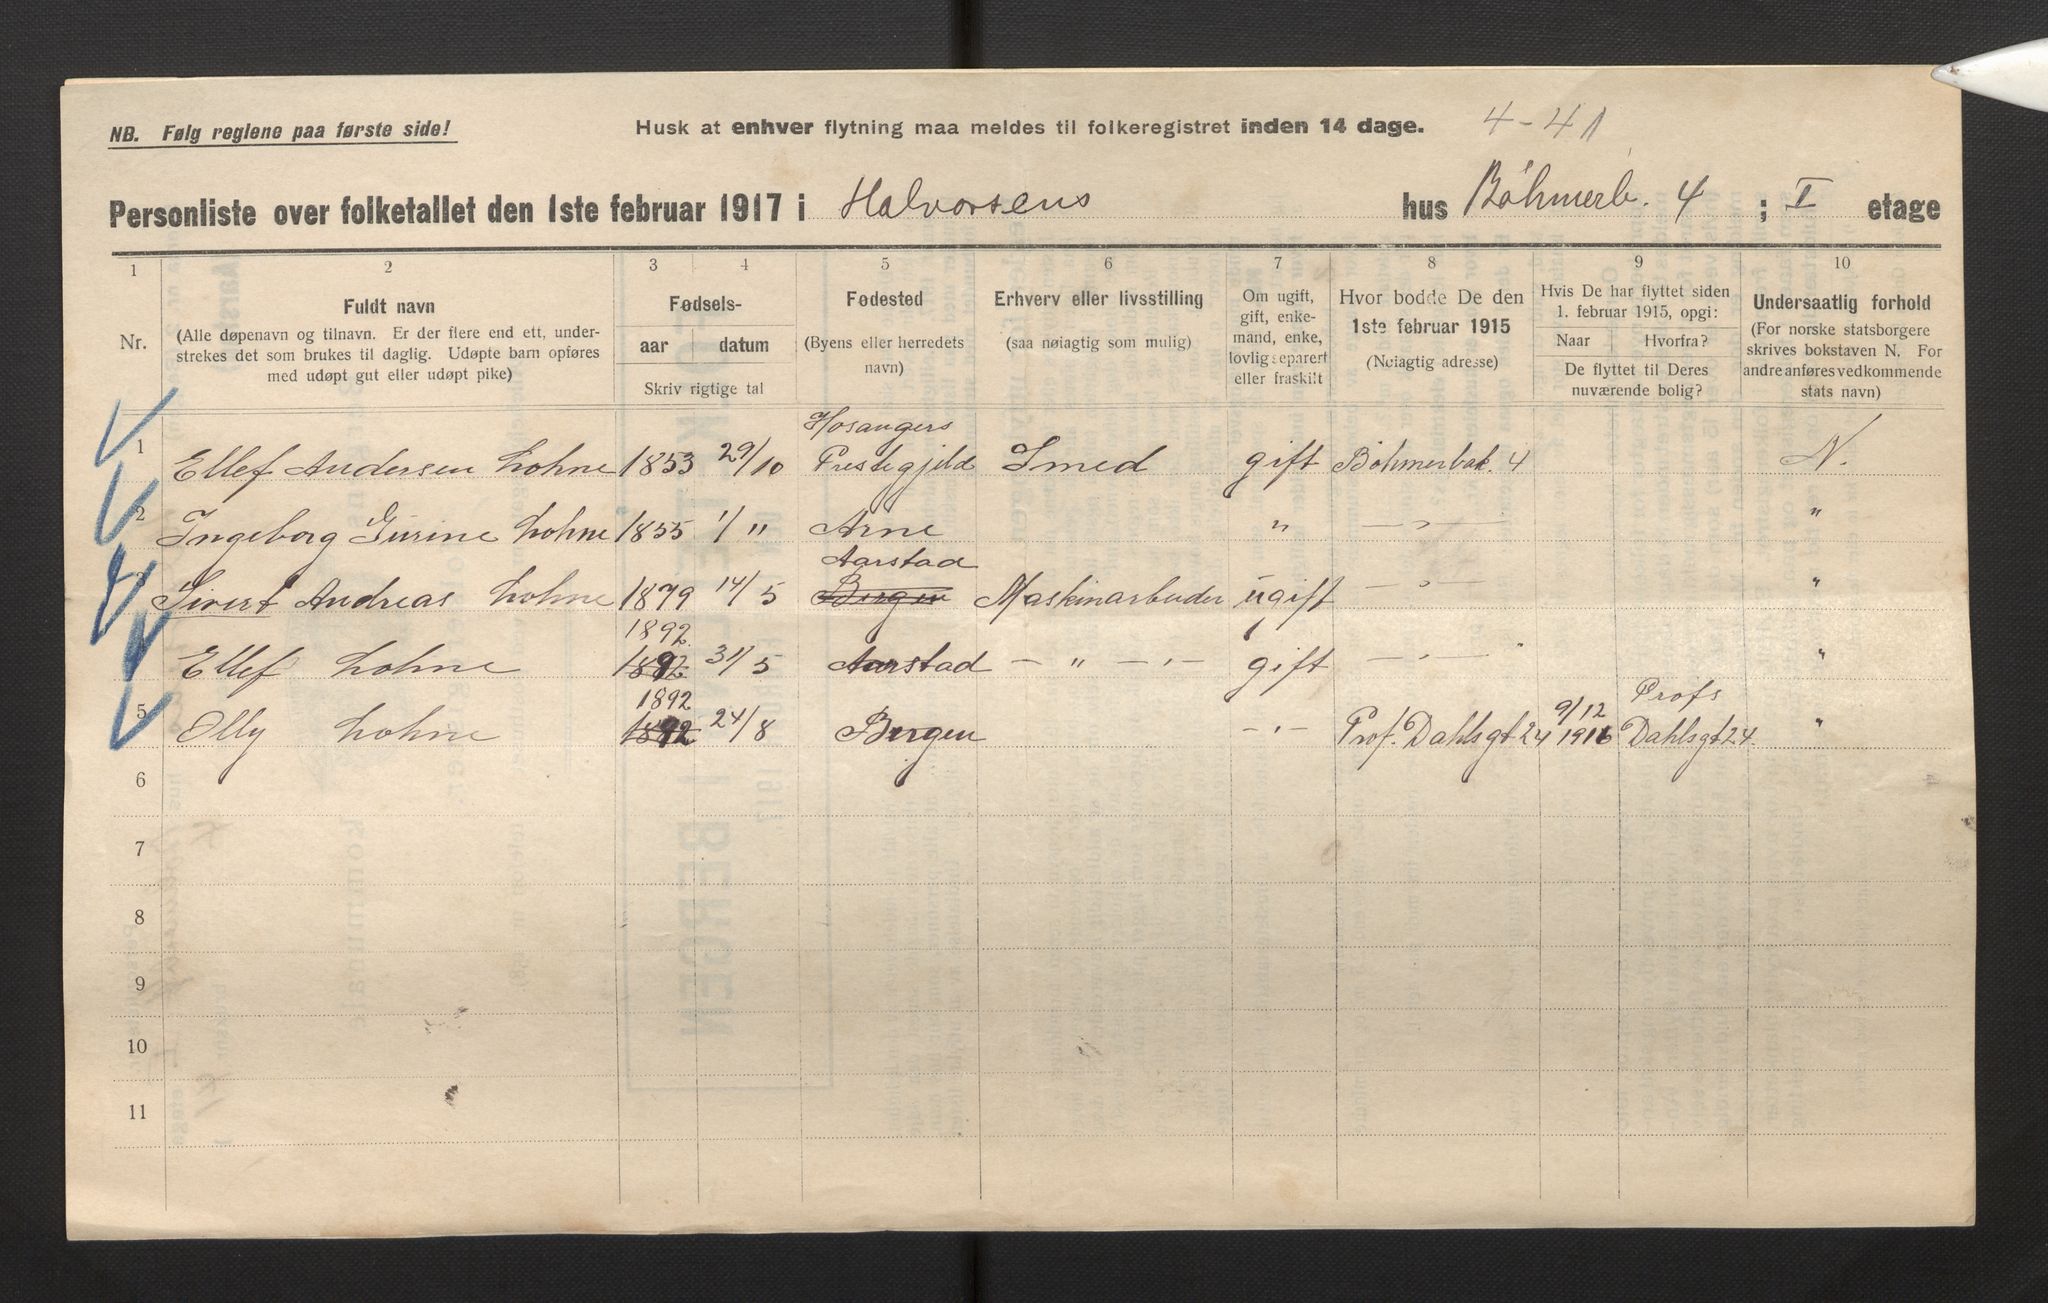 NB. Følg reglene paa første side!
Husk at enhver flytning maa meldes til folkeregistret inden 14 dage.
4-41
Personliste over folketallet den 1ste februar 1917 i Halvorsens hus Böhmerb. 4 ; I etage
1 2 3 4 5 6 7 8 9 10
Nr.
Fuldt navn
(Alle døpenavn og tilnavn. Er der flere end ett, under-
strekes det som brukes til daglig. Udøpte barn opføres
med udøpt gut eller udøpt pike)
Fødsels-
aar datum
Skriv rigtige tal
Fødested
(Byens eller herredets
navn)
Erhverv eller livsstilling
(saa nøiagtig som mulig)
Om ugift,
gift, enke-
mand, enke,
lovlig separert
eller fraskilt
Hvor bodde De den
1ste februar 1915
(Nøiagtig adresse)
Hvis De har flyttet siden
1. februar 1915, opgi:
Naar Hvorfra?
De flyttet til Deres
nuværende bolig?
Undersaatlig forhold
(For norske statsborgere
skrives bokstaven N. For
andre anføres vedkommende
stats navn)
Hosangers
1 Ellef Andersen Lohne 1853 29/10 Prestegjeld Smed gift Böhmerbak. 4 N.
2 Ingeborg Gurine Lohne 1855 1/" Arne " — " — "
Aarstad
3 Sivert Andreas Lohne 1879 14/5 Bergen Maskinarbeider ugift — " — "
1892
Ellef Lohne 1892 31/5 Aarstad — " — " — gift — " — "
1892 9/12 Profs
5 Olly Lohne 1892 24/8 Bergen — " — Prof. Dahlsgt 24 1916 Dahlsgt 24. "
6
7
8
9
10
11